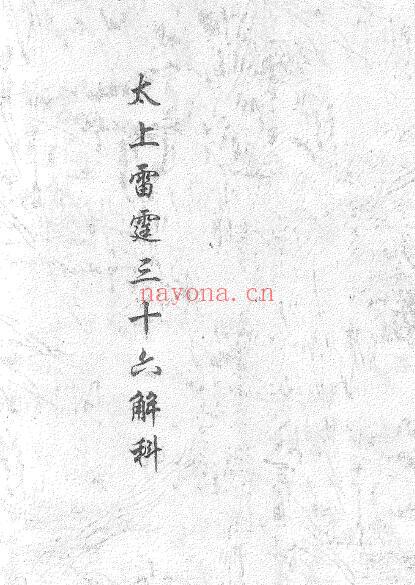 太上雷霆三十六解科
nayona.cn